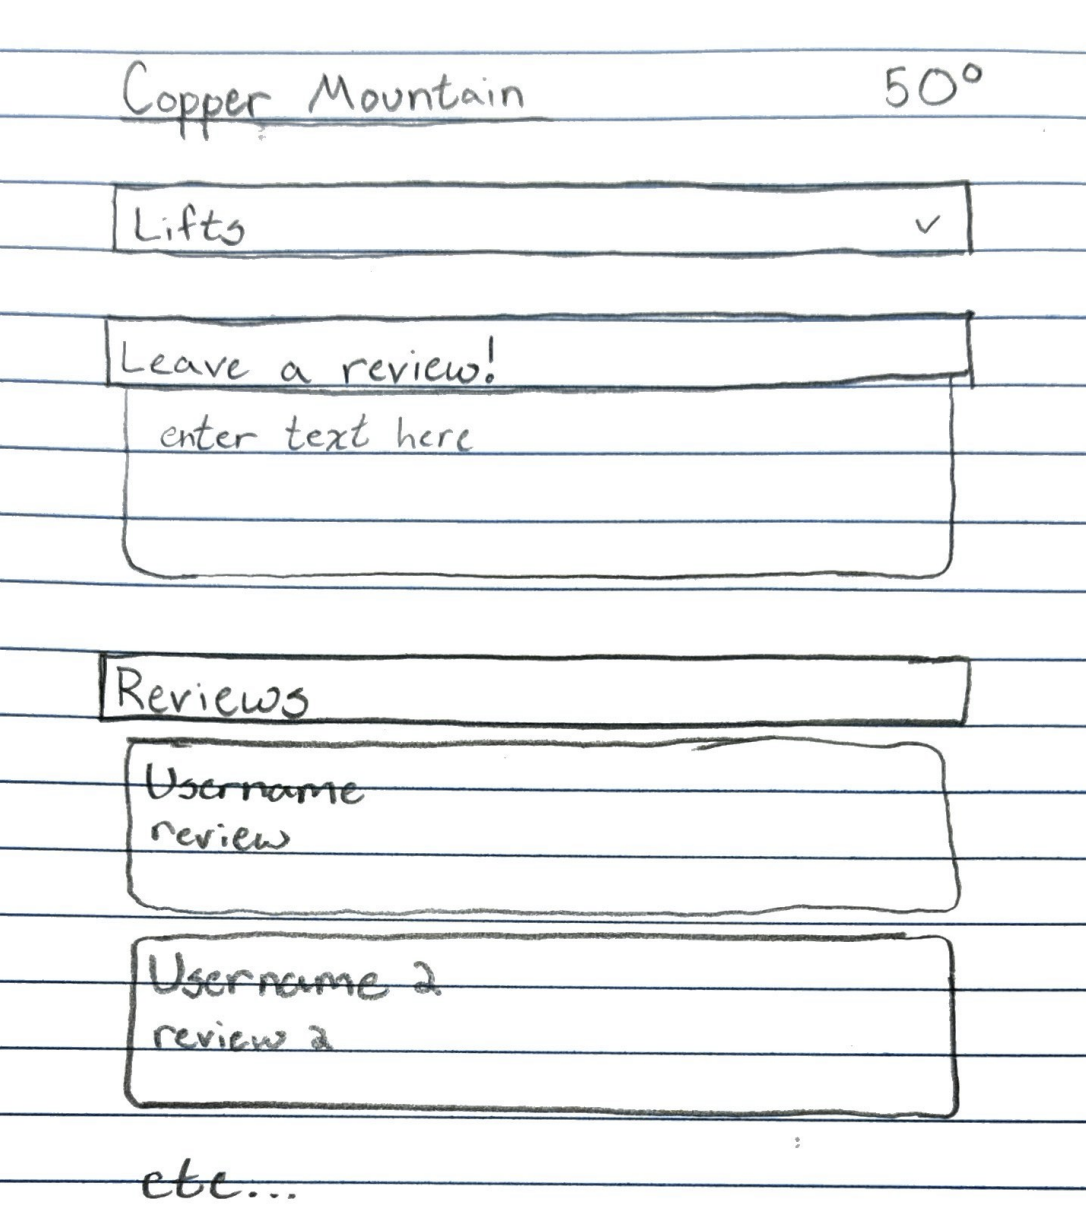 Copper Mountain 50°
Lifts
Leave a review!
enter text here
Reviews
Username
review
Username 2
review 2
etc...